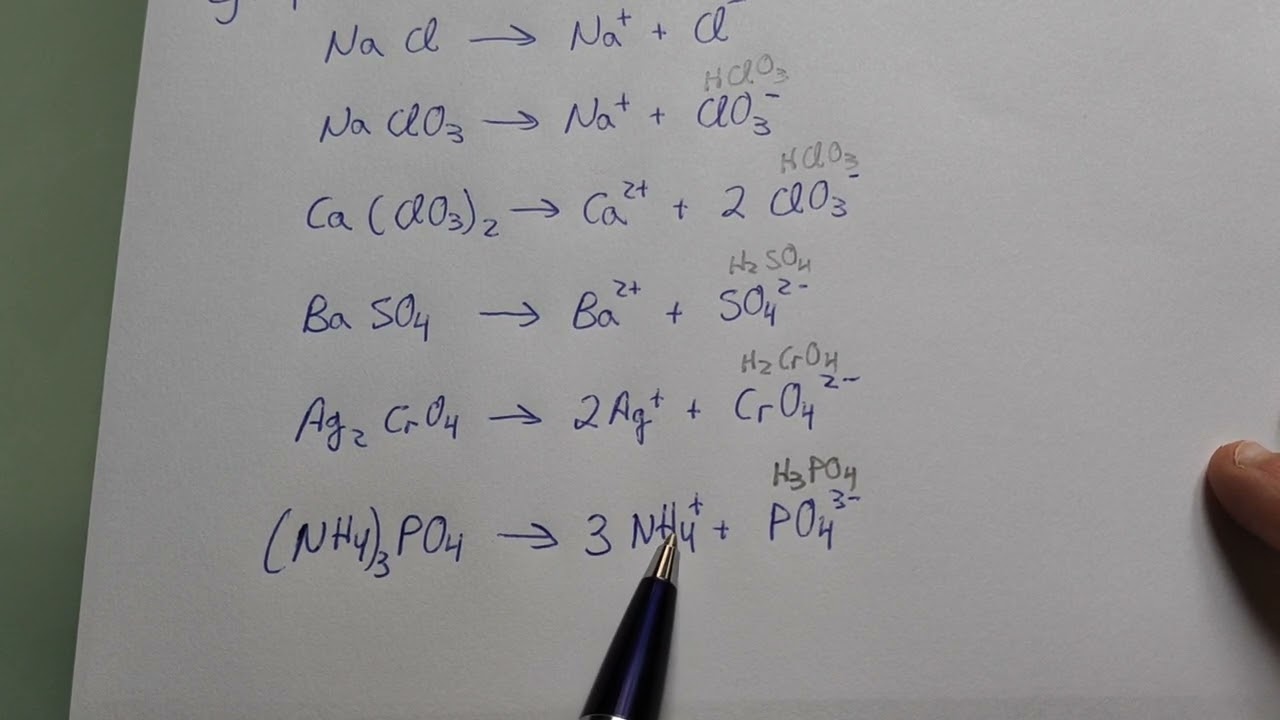 Na Cl → Na⁺ + Cl⁻
HClO₃
Na ClO₃ → Na⁺ + ClO₃⁻
HClO₃
Ca (ClO₃)₂ → Ca²⁺ + 2 ClO₃⁻
H₂SO₄
Ba SO₄ → Ba²⁺ + SO₄²⁻
H₂CrO₄
Ag₂ CrO₄ → 2Ag⁺ + CrO₄²⁻
H₃PO₄
(NH₄)₃PO₄ → 3 NH₄⁺ + PO₄³⁻